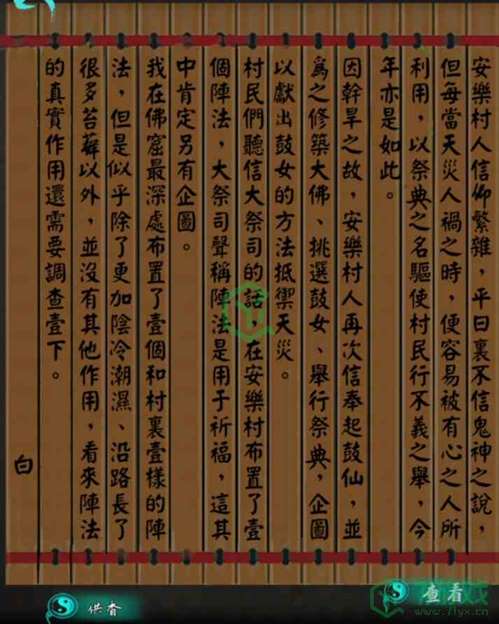 安樂村人信仰繁雜，平日裏不信鬼神之說，
但每當天災人禍之時，便容易被有心之人所
利用，以祭典之名驅使村民行不義之舉，今
年亦是如此。
因幹旱之故，安樂村人再次信奉起鼓仙，並
爲之修築大佛、挑選鼓女、舉行祭典，企圖
以獻出鼓女的方法抵禦天災。
村民們聽信大祭司的話，在安樂村布置了壹
個陣法，大祭司聲稱陣法是用于祈福，這其
中肯定另有企圖。
我在佛窟最深處布置了壹個和村裏壹樣的陣
法，但是似乎除了更加陰冷潮濕、沿路長了
很多苔蘚以外，並沒有其他作用，看來陣法
的真實作用還需要調查壹下。
白
供香
查看
www.7lyx.cn